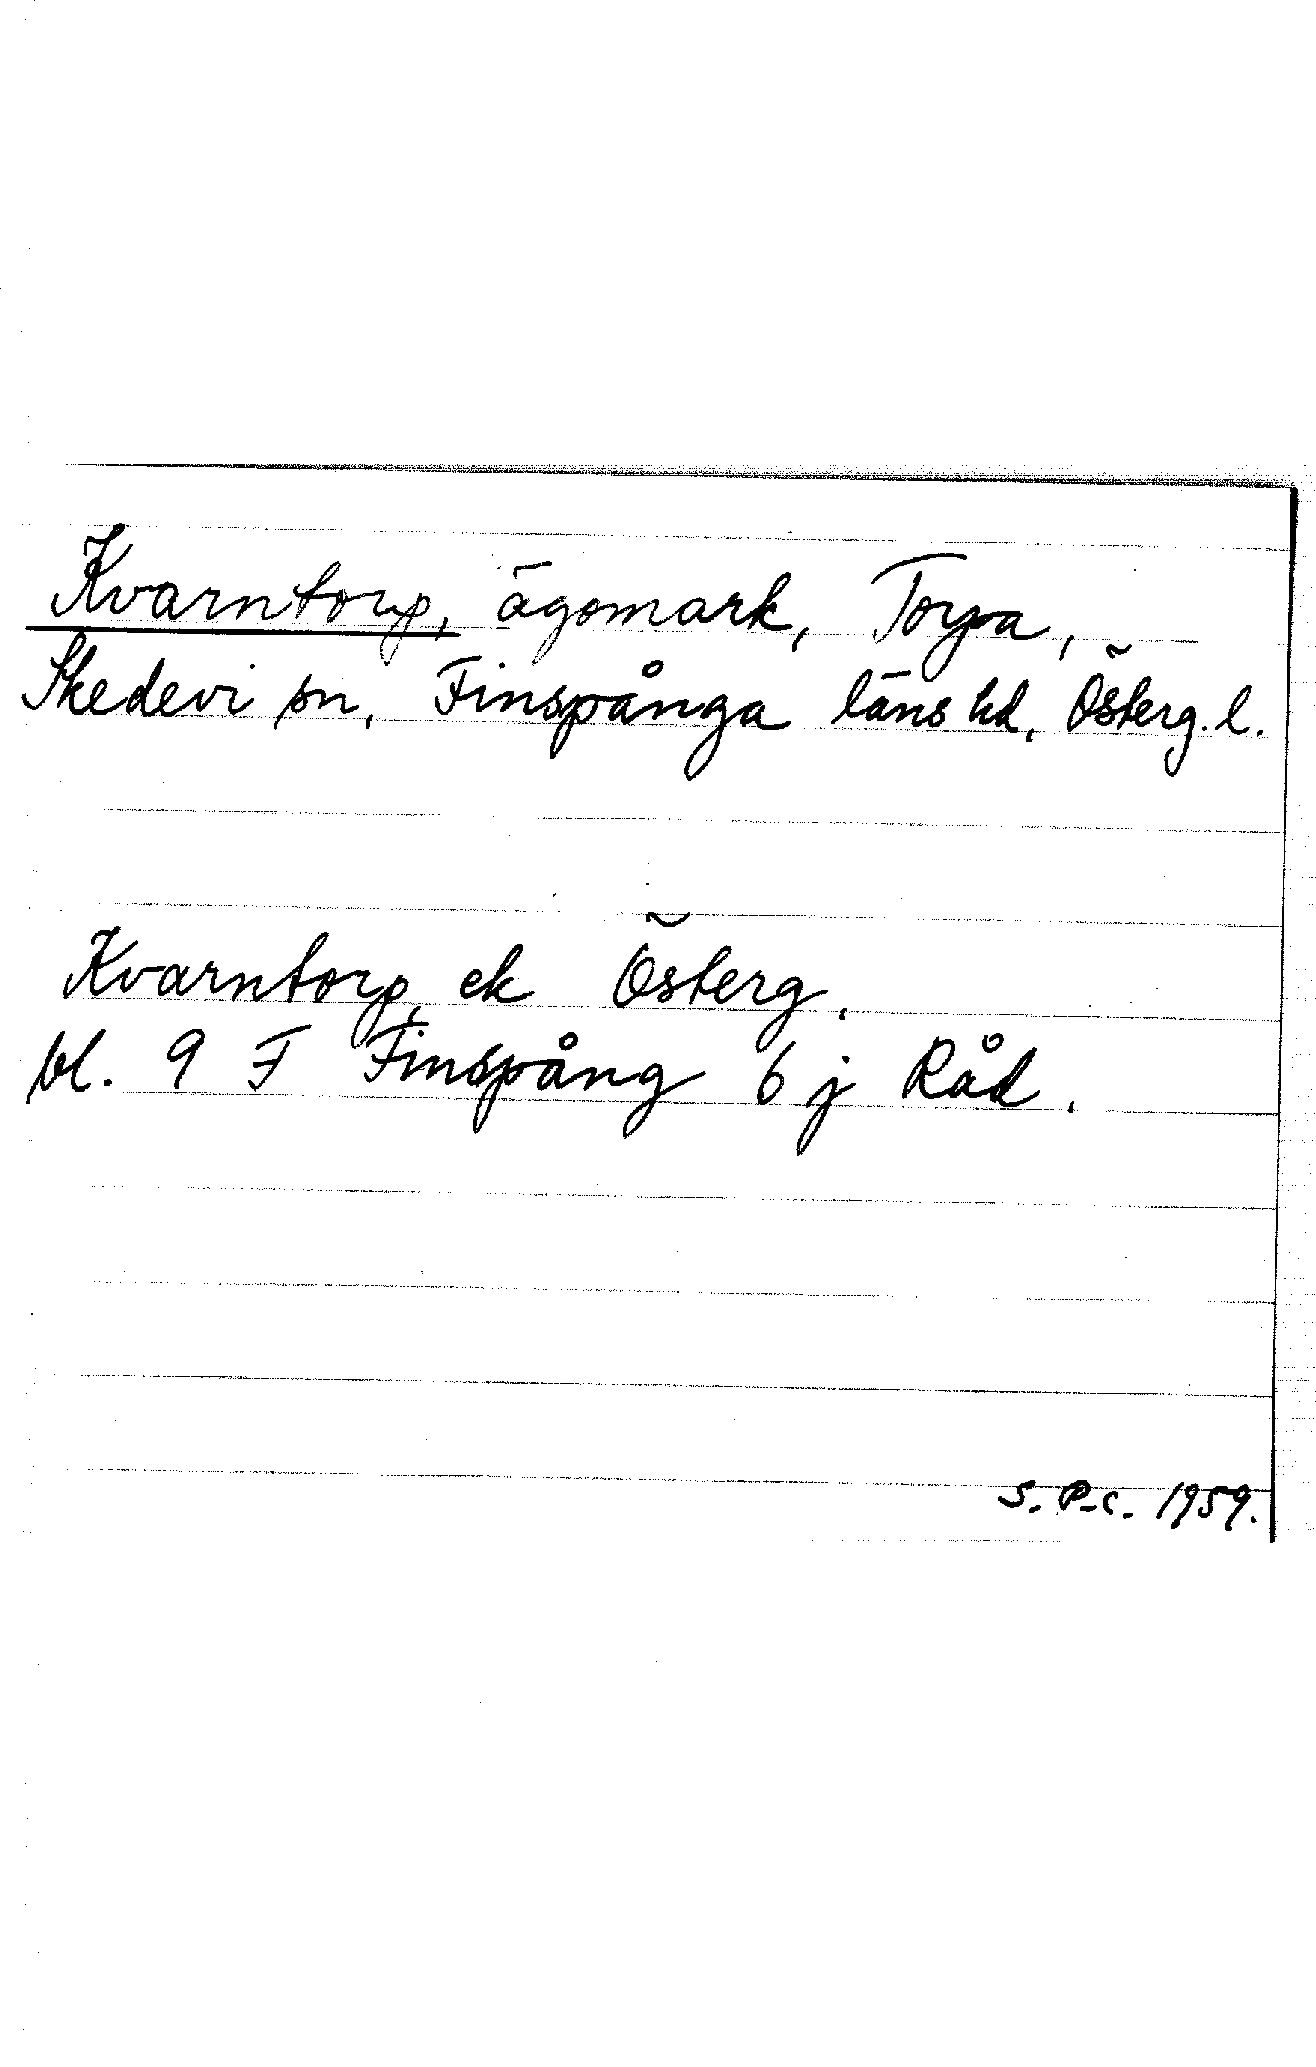 Kvarntorp, ägomark, Torpa,
Skedevi sn, Finspånga läns hd, Österg. l.
Kvarntorp, ek Österg.
bl. 9 F Finspång 6 j Råd.
S. P-c. 1959.